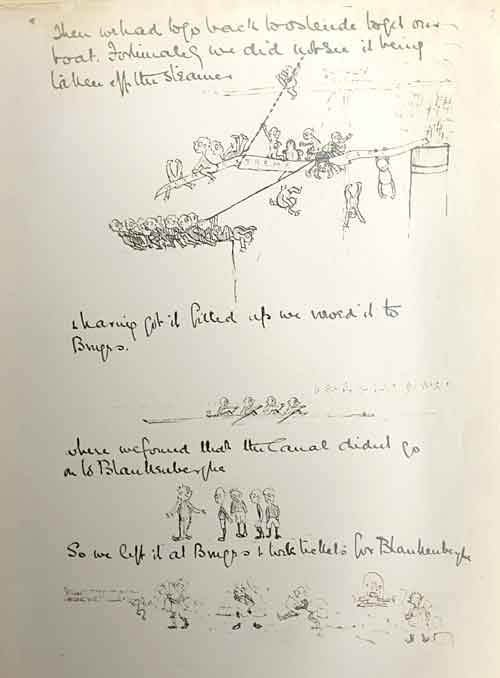 Then we had to go back to Ostende to get our
boat. Fortunately we did not see it being
taken off the steamer
& having got it fitted up we rowed it to
Bruges.
where we found that the Canal didn't go
on to Blankenberghe
So we left it at Bruges & took tickets for Blankenberghe